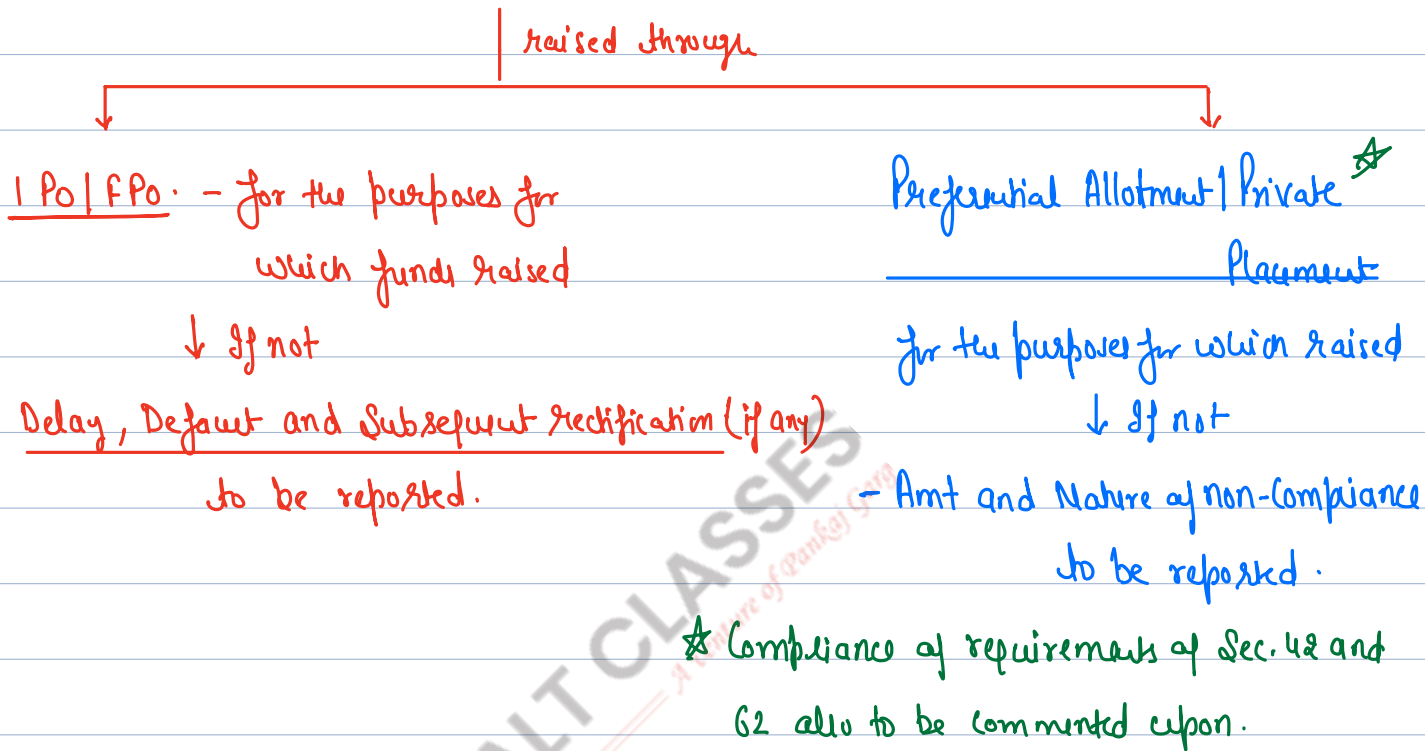 raised through
IPO | FPO. - for the purposes for
which funds raised
↓ If not
Delay, Default and Subsequent rectification (if any)
to be reported.
Preferential Allotment | Private ☆
Placement
for the purposes for which raised
↓ If not
- Amt and Nature of non-Compliance
to be reported.
☆ Compliance of requirements of Sec. 42 and
62 also to be commented upon.
ALT CLASSES
A Venture of Pankaj Garg